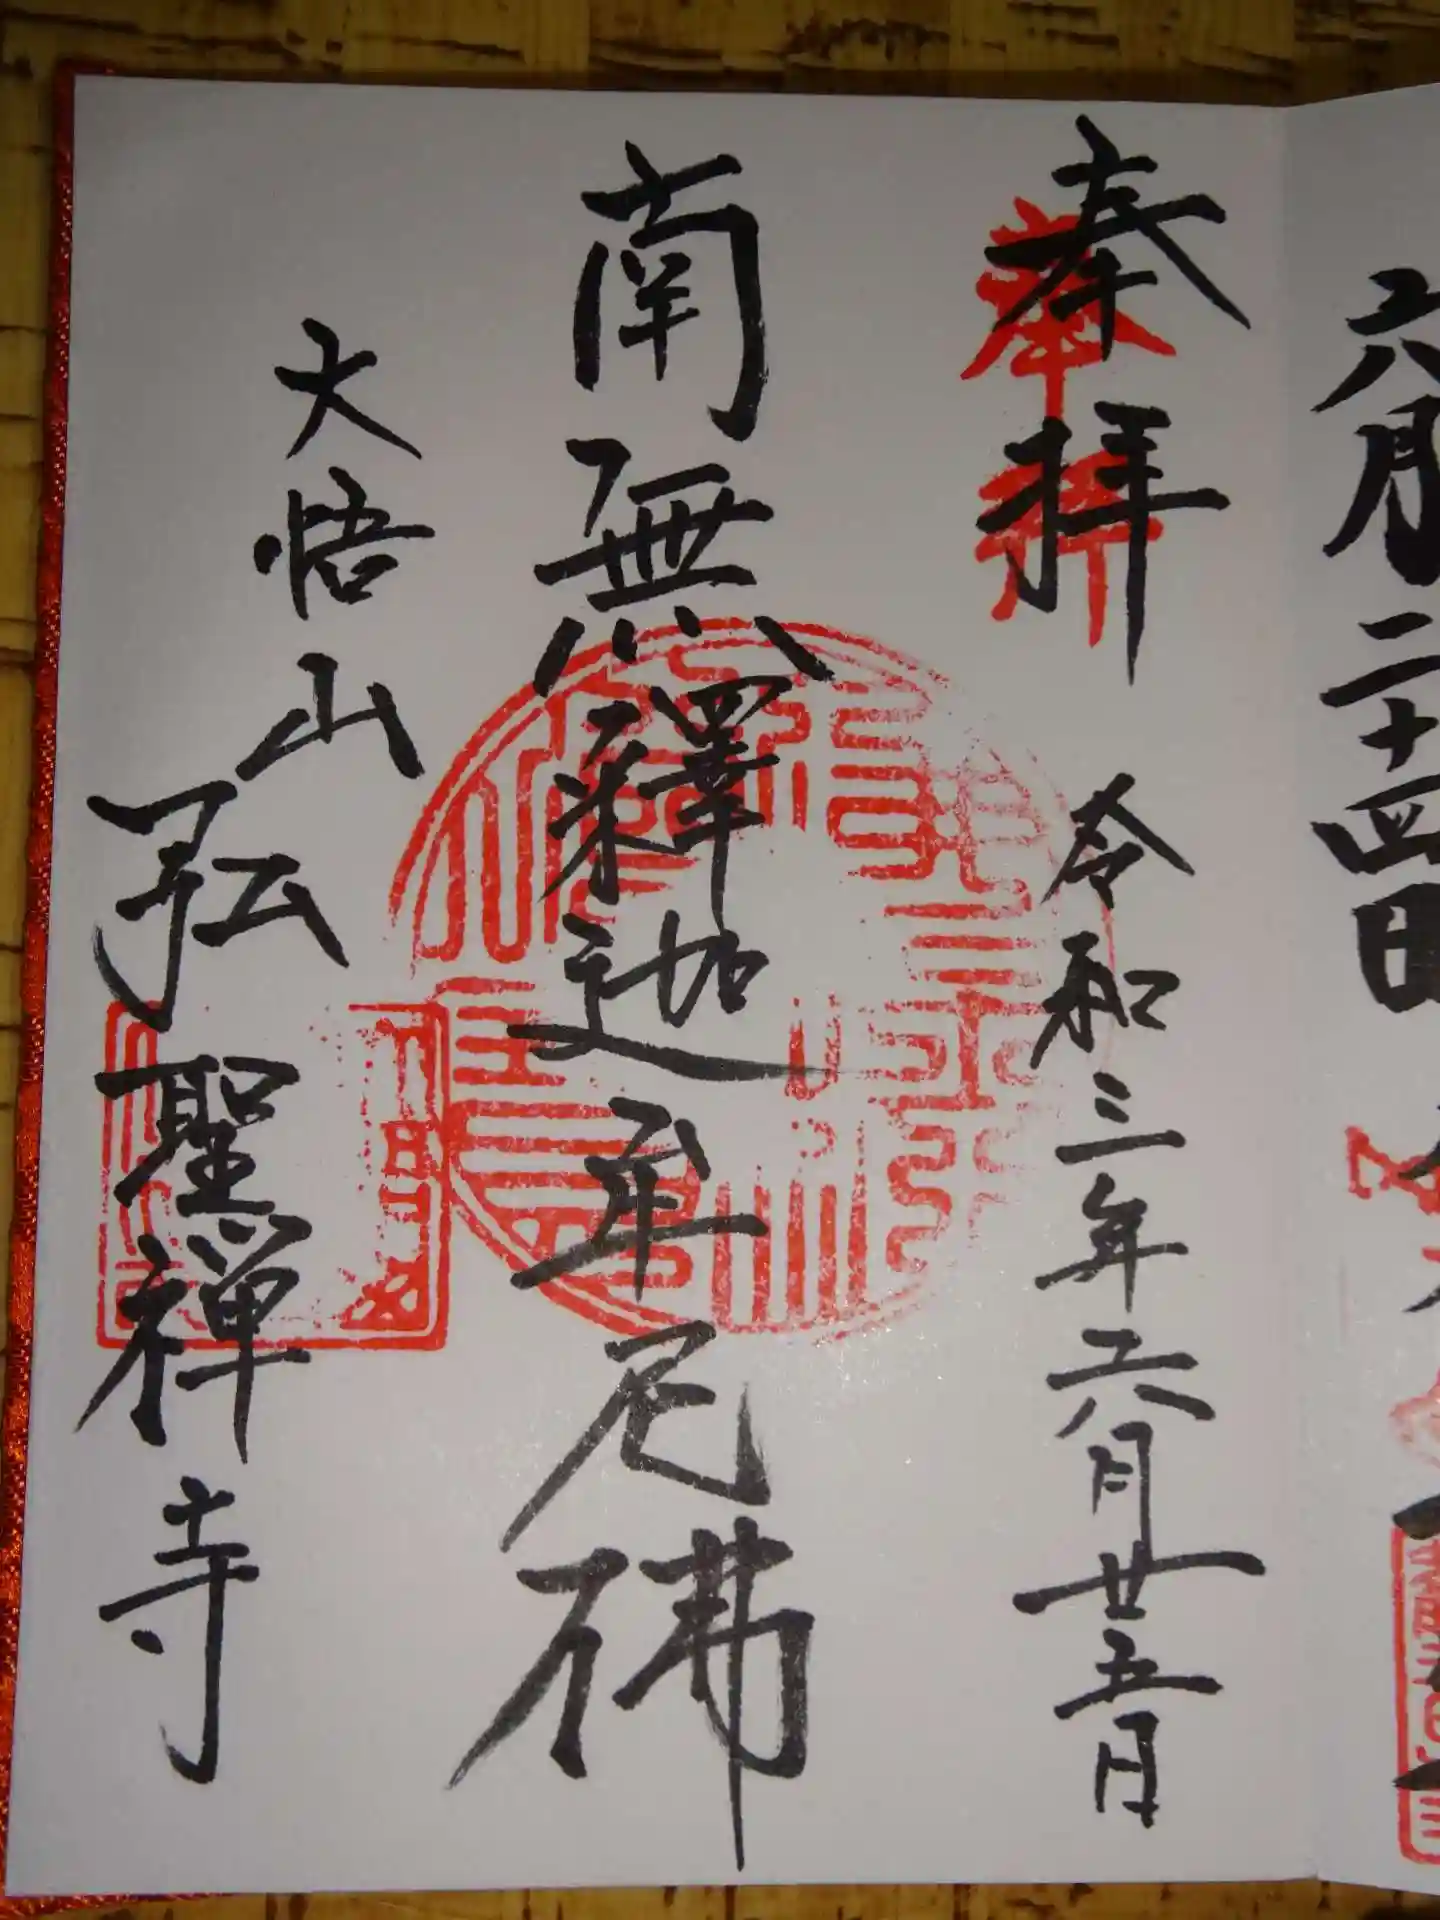 六月二十四日
奉拝 令和三年六月廿五日
奉拝
南無釋迦牟尼佛
大悟山
弘聖禅寺